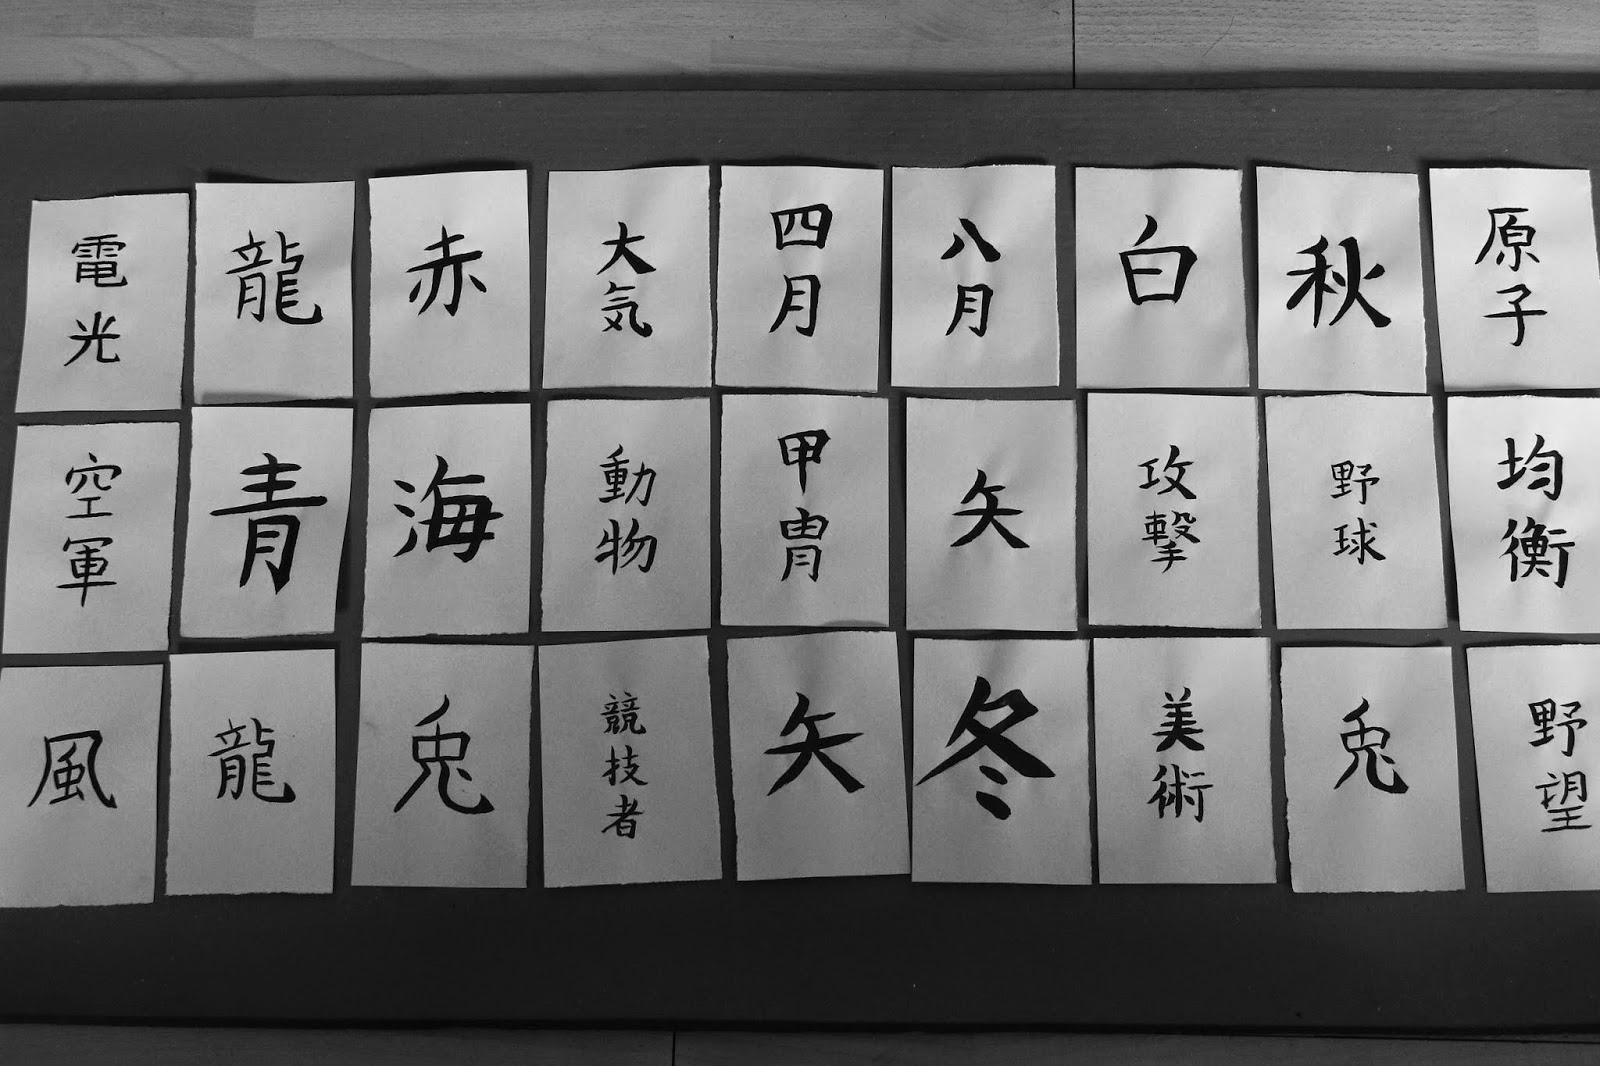 電光
龍
赤
大気
四月
八月
白
秋
原子
空軍
青
海
動物
甲冑
矢
攻撃
野球
均衡
風
龍
兎
競技者
矢
冬
美術
兎
野望